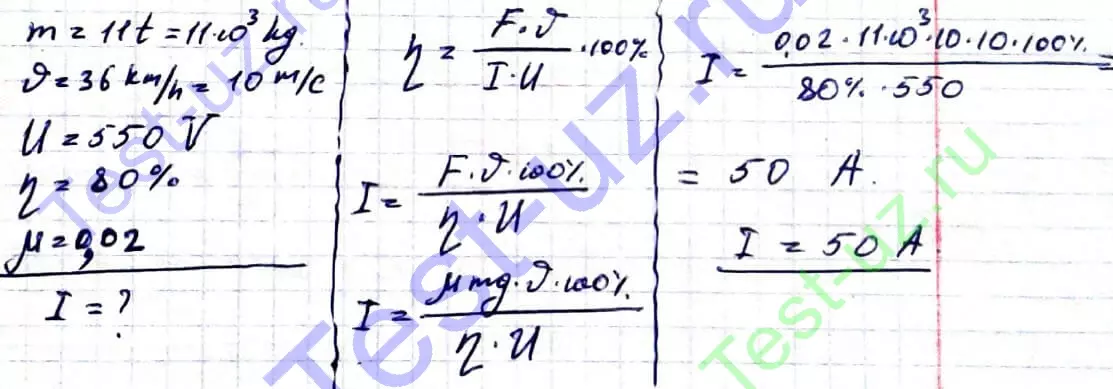 m = 11t = 11·10³ kg.
ϑ = 36 km/h = 10 m/c
U = 550 V
η = 80%
μ = 0,02
I = ?
η = F·ϑ / I·U ·100%
I = F·ϑ·100% / η·U
I = μmg·ϑ·100% / η·U
I = 0,02·11·10³·10·10·100% / 80%·550 =
= 50 A.
I = 50 A.
Test-uz.ru
Test-uz.ru
Test-uz.ru